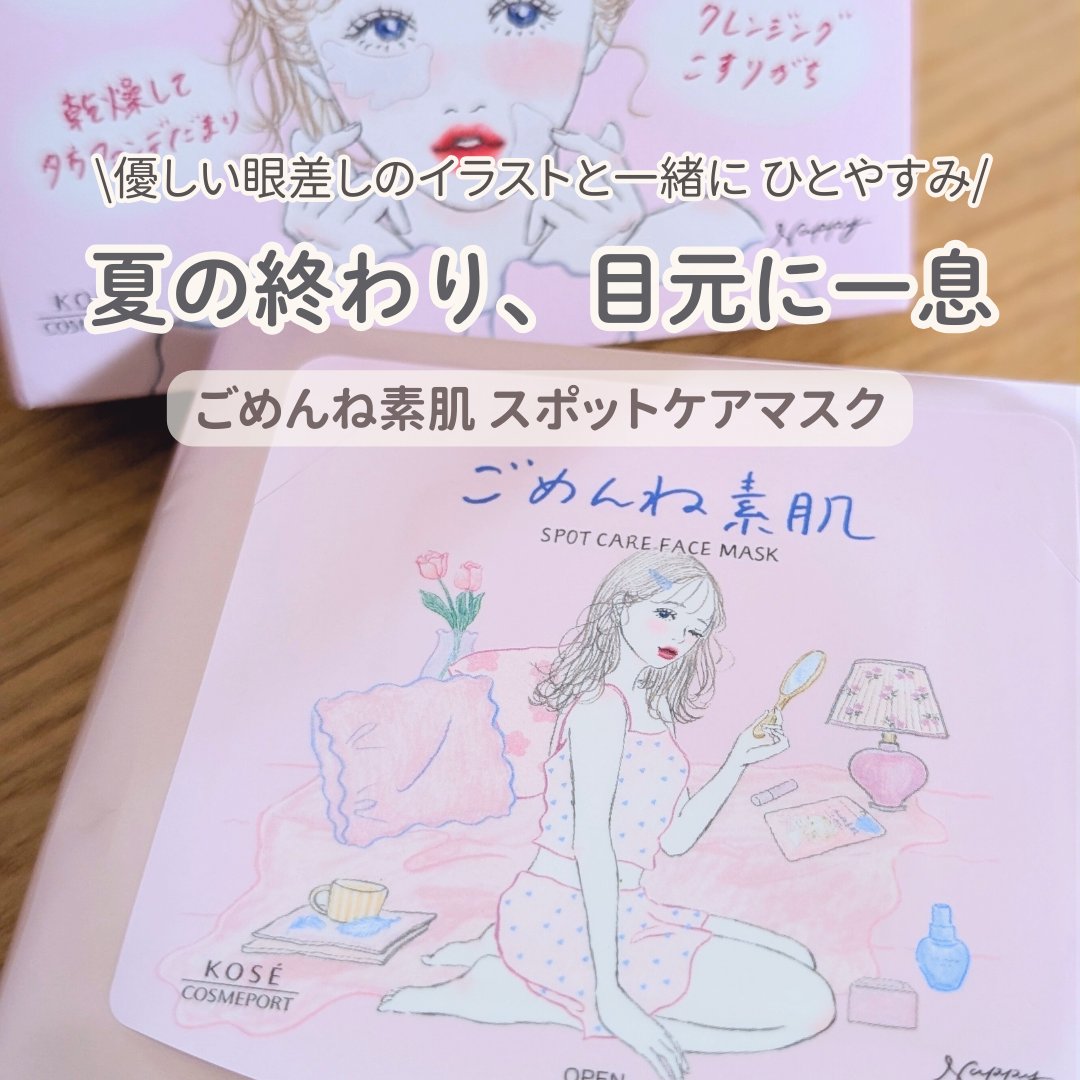 クレンジング
こすりがち
乾燥して
夕方ファンデだまり
\優しい眼差しのイラストと一緒に ひとやすみ/
Nappy
夏の終わり、目元に一息
KO
COSM
ごめんね素肌 スポットケアマスク
ごめんね素肌
SPOT CARE FACE MASK
KOSÉ
COSMEPORT
OPEN
Nappy